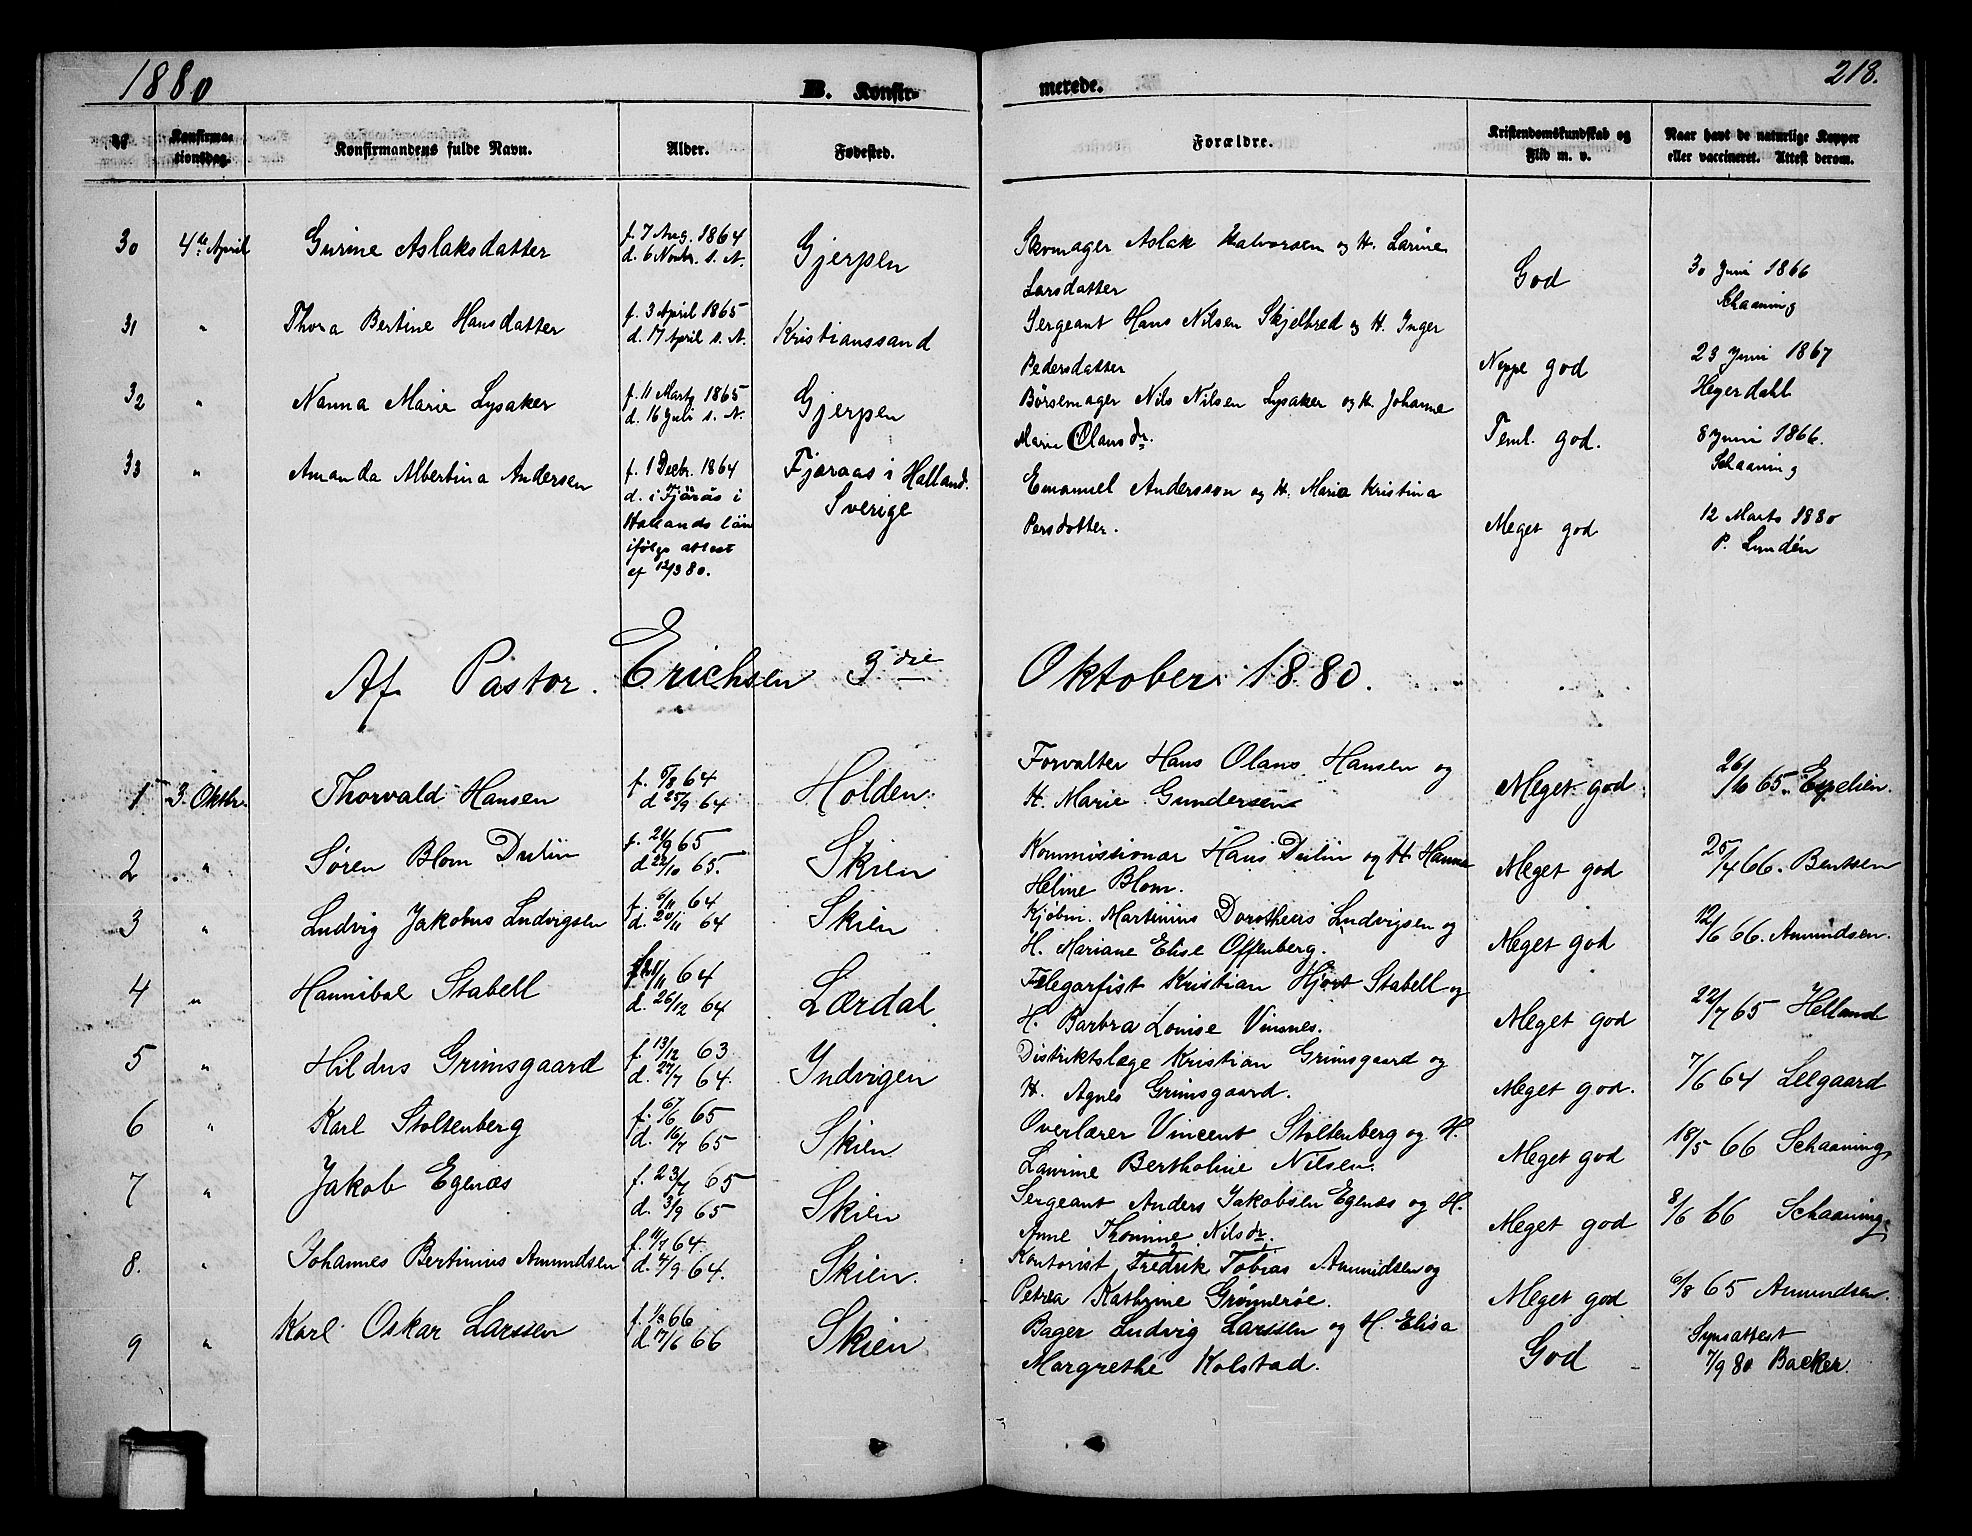 1880 B. Konfir- merede. 218.
No Konfirma-tionsdag. Konfirmandens fulde Navn. Alder. Fødested. Forældre. Kristendomskundskab og Flid m. v. Naar havt de naturlige Kopper eller vaccineret. Attest derom.
30 4de April Gurine Aslaksdatter f. 7 Aug. 1864 Gjerpen Skomager Aslak Halvorsen og H. Larine God 30 Juni 1866
d. 6 Novbr. s. A. Larsdatter Schaaning
31 " Thora Bertine Hansdatter f. 3 April 1865 Kristianssand Sergeant Hans Nilsen Skjelbred og H. Inger Neppe god 23 Juni 1867
d. 17 April s. A. Pedersdatter Heyerdahl
32 " Nanna Marie Lysaker f. 11 Marts 1865 Gjerpen Børsemager Nils Nilsen Lysaker og H. Johanne Teml. god. 8 Juni 1866.
d. 16 Juli s. A. Marie Olansdr. Schaaning
33 " Amanda Albertina Andersen f. 1 Decbr. 1864 Fjæraas i Halland. Emanuel Andersson og H. Maria Kristina Meget god 12 Marts 1880
d. i Fjärås i Sverige Persdotter. P. Lundén
Hallands län
ifølge attest
af 12/3 80.
Af Pastor Erichsen 3die Oktober 1880.
1 3. Oktbr. Thorvald Hansen f. 5/8 64 Holden Forvalter Hans Olans Hansen og Meget god 26/10 65.
d 25/9 64 H. Marie Gundersen
2 " Søren Blom Dulin f. 21/9 65 Skien Kommissionær Hans Dulin og H. Hanna Meget god 25/4 66. Bentsen
d 22/10 65. Heline Blom.
3 " Ludvig Jakobus Ludvigsen f. 6/11 64 Skien Kjøbm. Martinius Dorotheus Ludvigsen og Meget god 12/6 66. Amundsen.
d. 20/11 64 H. Mariane Elise Offenberg.
4 " Hannibal Stabell 64 Lærdal Telegrafist Kristian Hjort Stabell og Meget god 22/7 65 Helland
d. 26/12 64 H. Barbra Louise Vinsnes.
5 " Hildus Grimsgaard f. 13/12 63 Indvigen Distriktslæge Kristian Grimsgaard og Meget god. 7/6 64 Leegaard
d. 27/7 64. H. Agnes Grimsgaard.
6 " Karl Stoltenberg f. 65 Skien Overlærer Vincent Stoltenberg og H. Meget god 18/5 66 Schaaning
d. 16/7 65 Laurine Bertholine Nilsen.
7 " Jakob Egenæs f. 65 Skien Sergeant Anders Jakobsen Egenæs og H. Meget god 8/6 66 Schaaning
d. 3/9 65 Anne Thomine Nilsdr.
8. " Johannes Bertinius Amundsen f. 11/7 64. Skien. Kontorist Fredrik Tobias Amundsen og Meget god 6/8 65 Amundsen.
d. 4/9 64. Petrea Kathrine Grønnerøe.
9 " Karl Oskar Larssen f. 66 Skien Bager Ludvig Larssen og H. Elisa God Synsattest
d. 17/6 66 Margrethe Kolstad. 7/9 80 Backer.